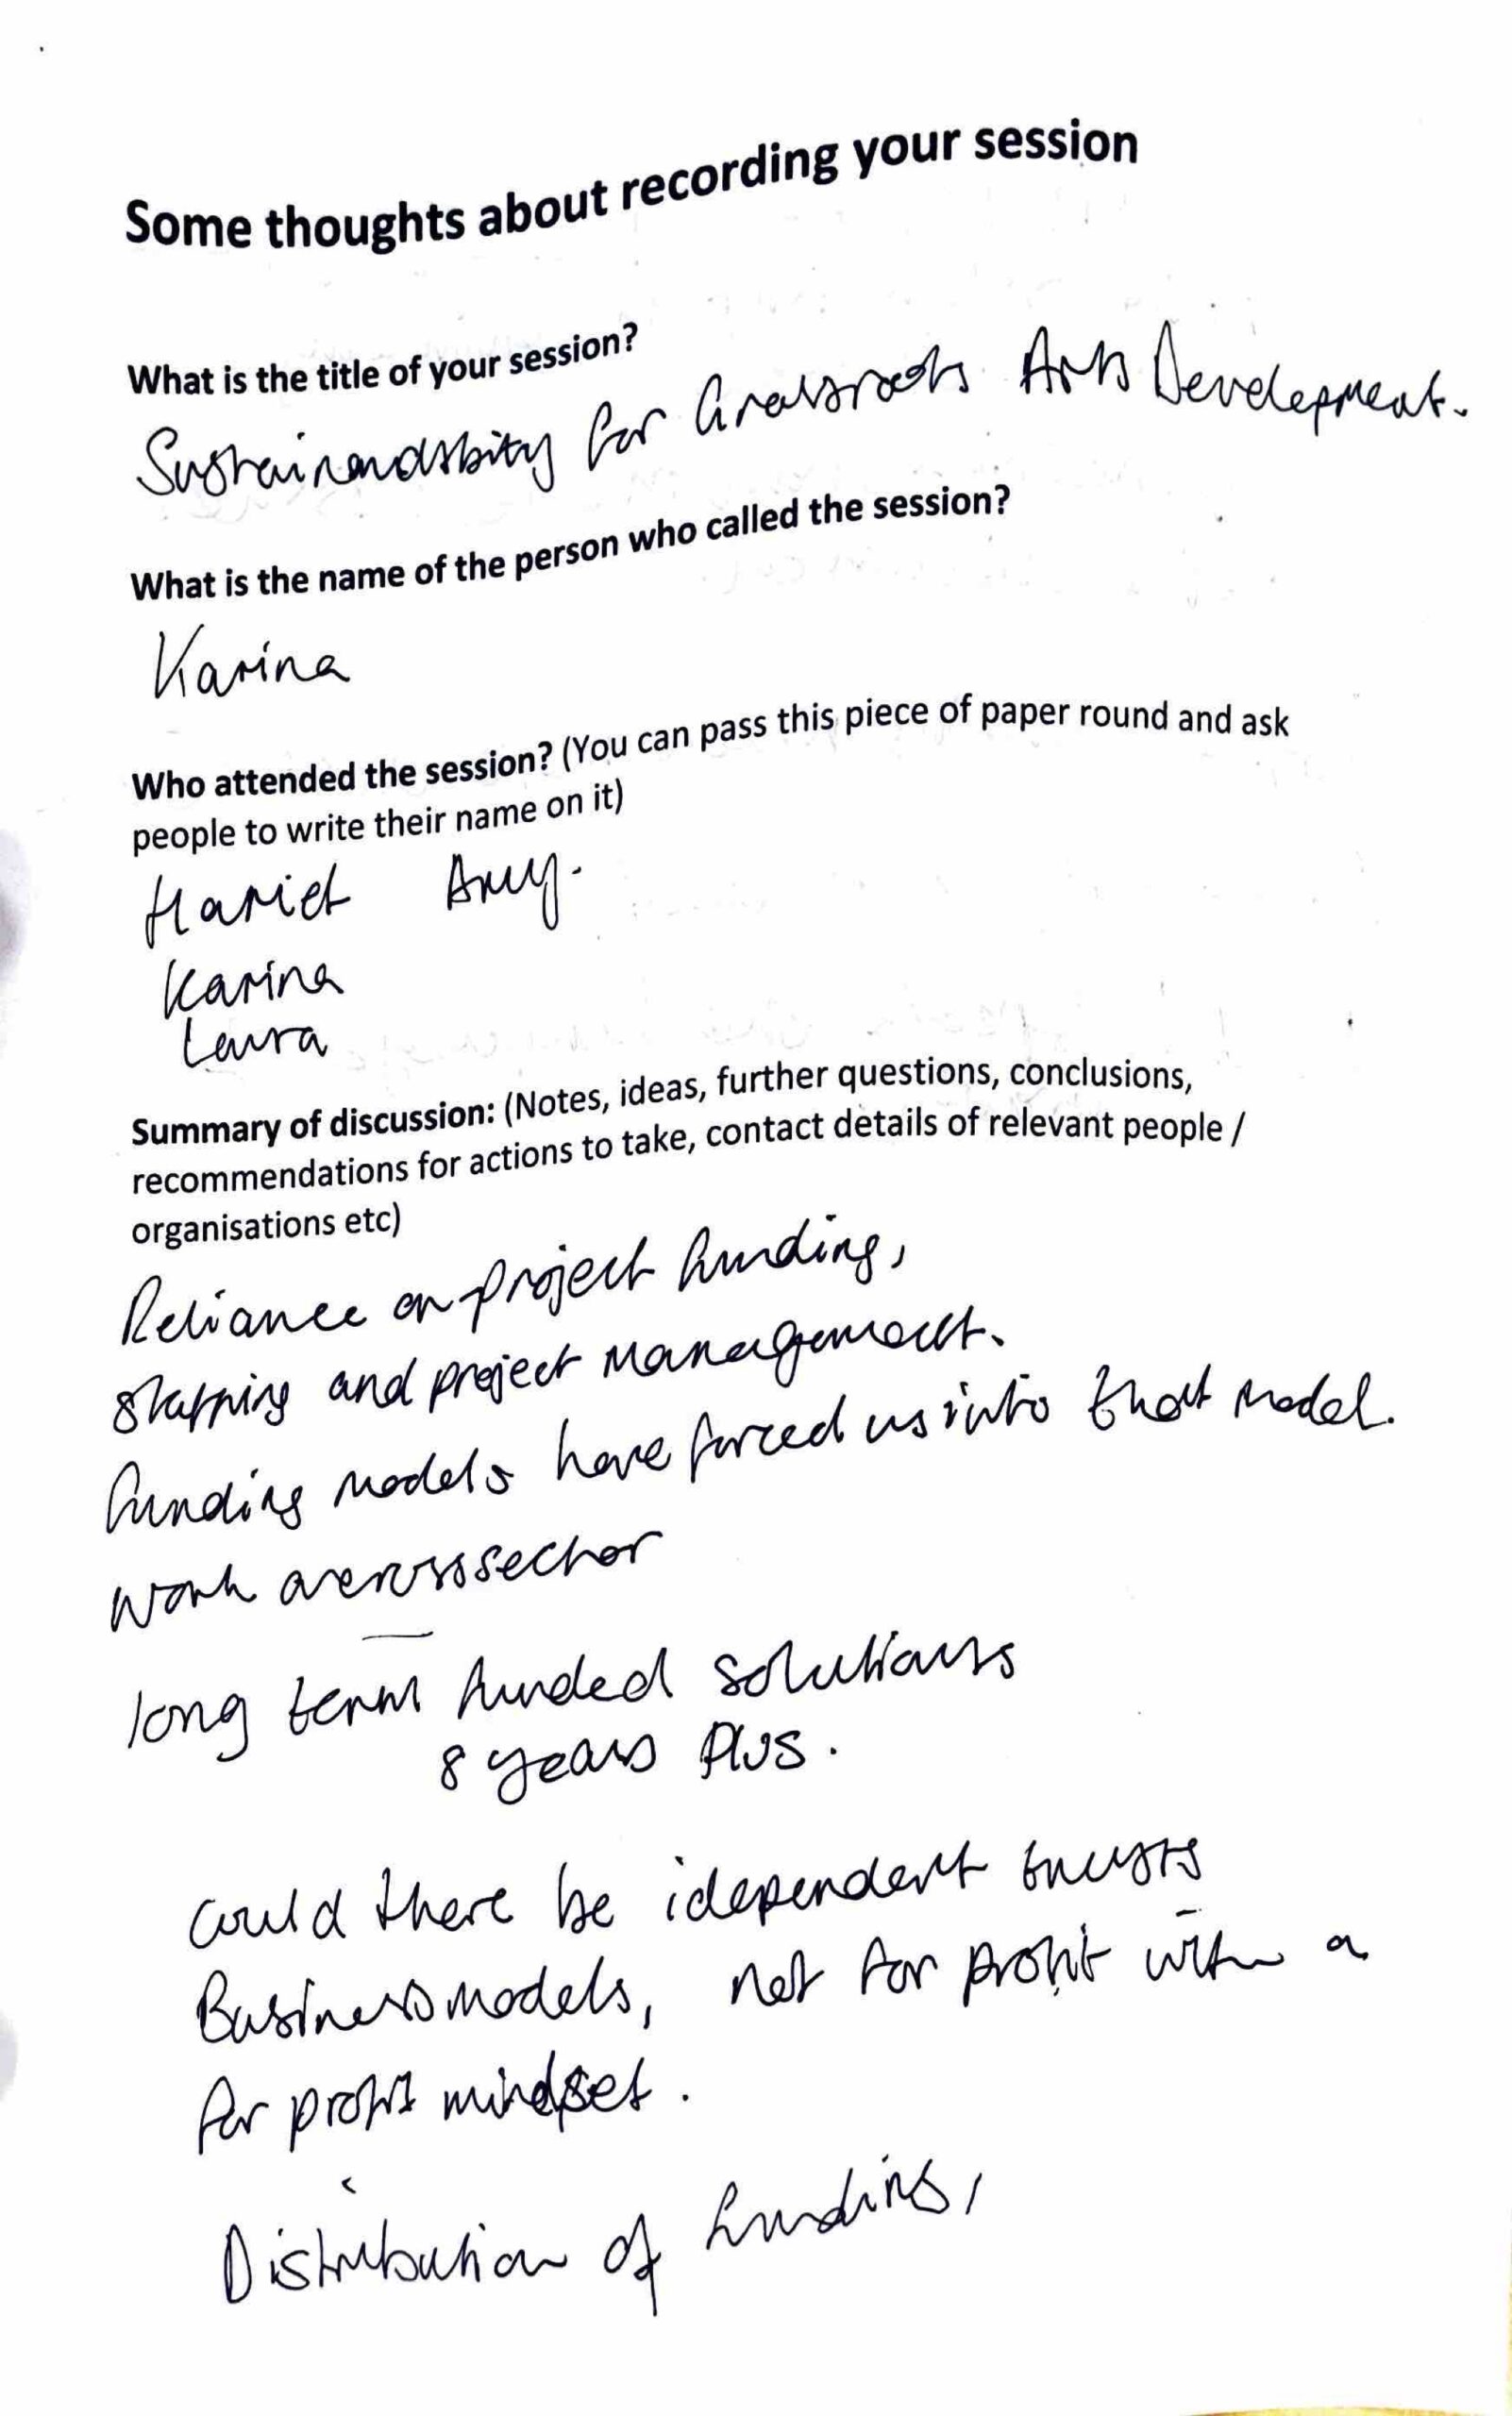 Some thoughts about recording your session
What is the title of your session?
for Grassroots Arts Development.
What is the name of the person who called the session?
Karina
Who attended the session? (You can pass this piece of paper round and ask
people to write their name on it)
Harriet Amy.
Karina
Laura
Summary of discussion: (Notes, ideas, further questions, conclusions,
recommendations for actions to take, contact details of relevant people /
organisations etc)
Reliance on project funding,
staffing and project management.
funding models have forced us into that model.
work across sector
long term funded solutions
8 years plus.
could there be idependent trusts
Business models, not for profit with a
for profit mindset.
Distribution of funding,